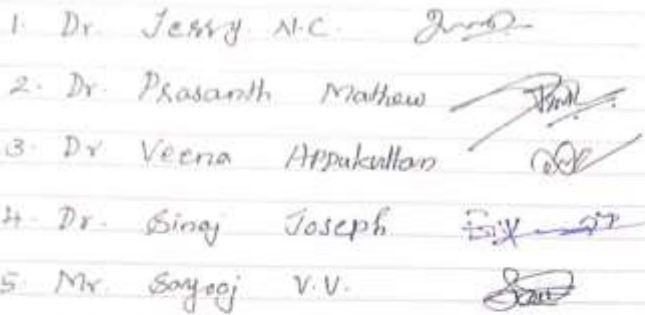 1. Dr. Jerry N.C.
2. Dr. Prasanth Mathew
3. Dr Veena Appukuttan
4. Dr. Sinoj Joseph
5. Mr. Sayooj V.V.